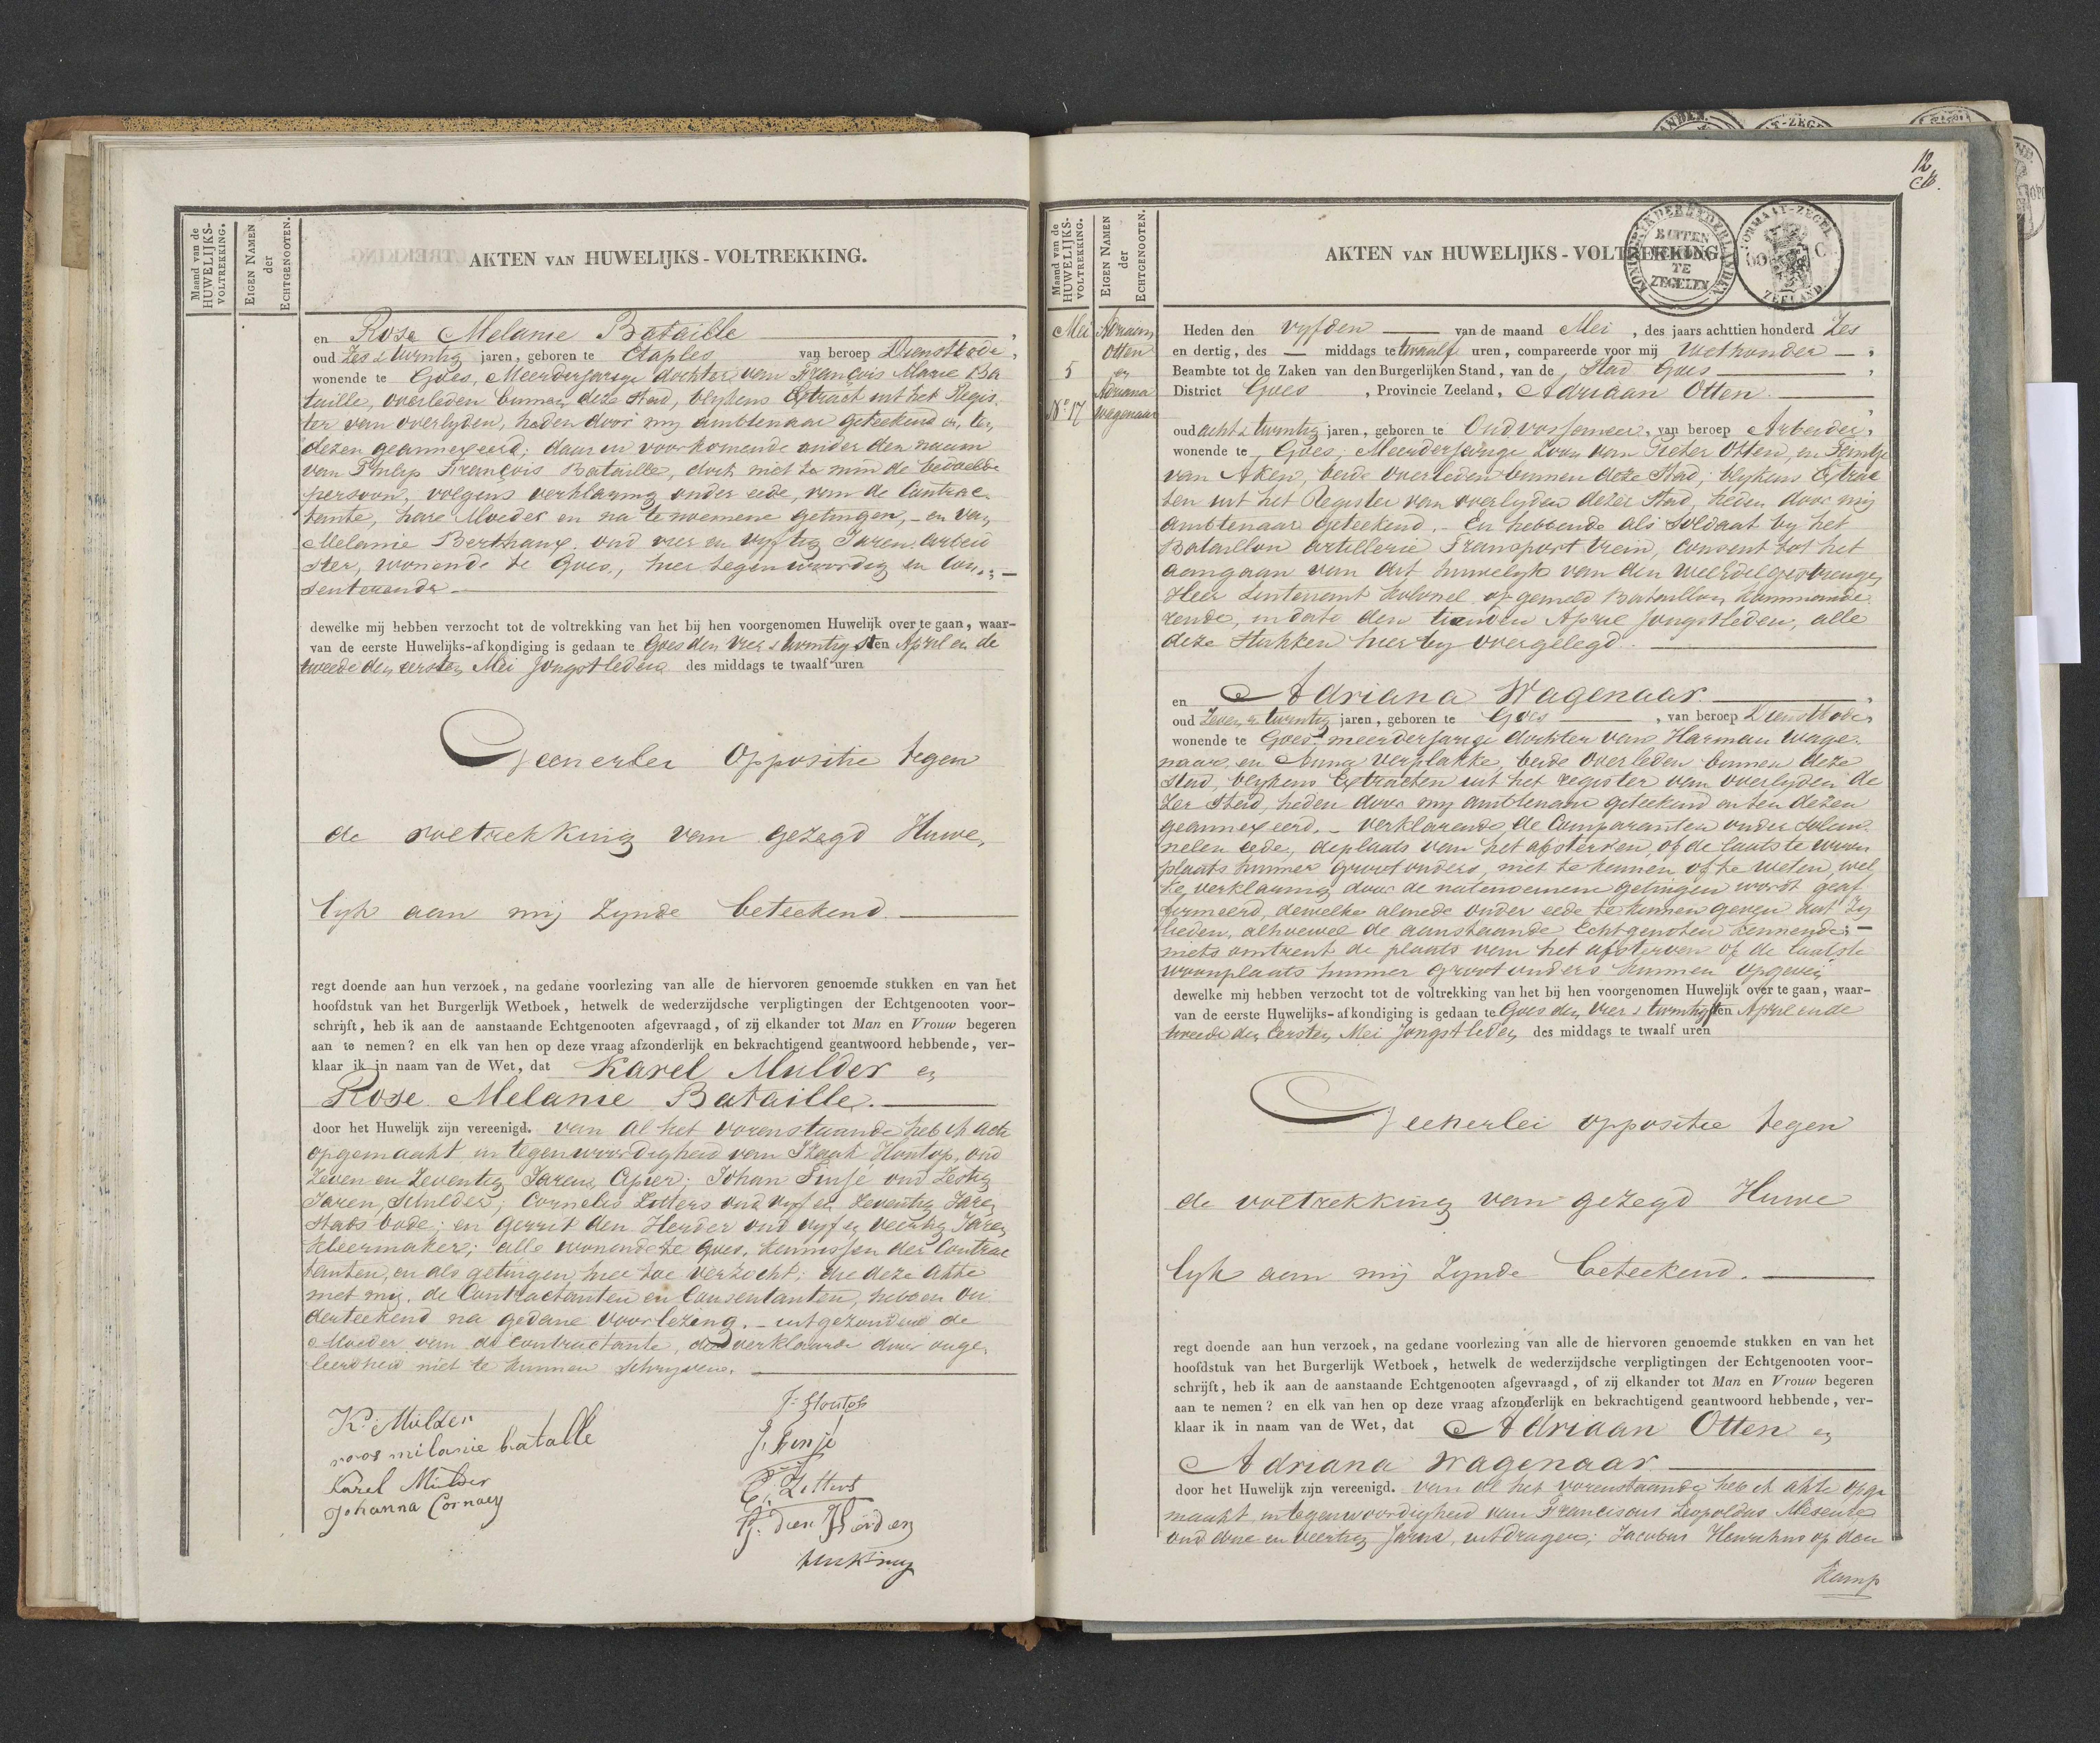 Maand van de
HUWELIJKS-
VOLTREKKING.
EIGEN NAMEN
der
ECHTGENOOTEN.
AKTEN VAN HUWELIJKS-VOLTREKKING.
en Rose Melanie Bataille,
oud Zes & twintig jaren, geboren te Etaples van beroep Dienstbode,
wonende te Goes, Meerderjarige dochter van François Marie Ba
taille, overleden binnen deze Stad, blykens Extract uit het Regis-
ter van overlyden, heden door my ambtenaar geteekend en, ten
dezen geannexeerd; daar in voorkomende onder den naam
van Philip François Bataille, doch niet te min de bedoelde
persoon, volgens verklaring onder eede, van de Contrac-
tante, hare Moeder en na te noemene getuigen, - en van
Melanie Berthaux, oud vier en vyftig Jaren arbeid
ster, wonende te Goes, hier tegenwoordig en con-
senterende
dewelke mij hebben verzocht tot de voltrekking van het bij hen voorgenomen Huwelijk over te gaan, waar-
van de eerste Huwelijks-afkondiging is gedaan te Goes den vier & twintigsten April en de
tweede den eersten Mei Jongstleden des middags te twaalf uren
Geenerlei Oppositie tegen
de voltrekking van gezegd Huwe-
lyk aan mij Zynde beteekend.
regt doende aan hun verzoek, na gedane voorlezing van alle de hiervoren genoemde stukken en van het
hoofdstuk van het Burgerlijk Wetboek, hetwelk de wederzijdsche verpligtingen der Echtgenooten voor-
schrijft, heb ik aan de aanstaande Echtgenooten afgevraagd, of zij elkander tot Man en Vrouw begeren
aan te nemen? en elk van hen op deze vraag afzonderlijk en bekrachtigend geantwoord hebbende, ver-
klaar ik in naam van de Wet, dat Karel Mulder en
Rose Melanie Bataille.
door het Huwelijk zijn vereenigd. van al het vorenstaande heb ik acte
opgemaakt in tegenwoordigheid van Izaak Houtop, oud
Zeven en Zeventig Jaren, Cipier; Johan Sinjé oud Zestig
Jaren, Schilder; Cornelis Zitters oud vyf en Zeventig Jaren
Stads bode; en Gerrit den Herder oud vyf en veertig Jaren
Kleermaker; alle wonende te Goes, kennissen der Contrac
tanten, en als getuigen hier toe verzocht; die deze akte
met my, de Contractanten en Consentanten, hebben on
derteekend na gedane voorlezing. - uitgezonderd de
Moeder van de Contractante, die verklaarde door onge-
leerdheid niet te kunnen Schryven.
K: Mulder
roos milanie batalle
Karel Mulder
Johanna Cornaey
I: Houtop
J. Sinje
C: Zitters
G. den Herder
Maand van de
HUWELIJKS-
VOLTREKKING.
EIGEN NAMEN
der
ECHTGENOOTEN.
12
AKTEN VAN HUWELIJKS-VOLTREKKING.
KONINGRIJK DER NEDERLANDEN
BUITEN
TE
ZEGELEN
FORMAAT-ZEGEL
60 C
ZEELAND.
Mei
5
N° 17
Adriaan
Otten
en
Adriana
Wagenaar
Heden den vyfden van de maand Mei, des jaars achttien honderd Zes
en dertig, des — middags te twaalf uren, compareerde voor mij Wethouder,
Beambte tot de Zaken van den Burgerlijken Stand, van de Stad Goes,
District Goes, Provincie Zeeland, Adriaan Otten.
oud acht & twintig jaren, geboren te Oudvossemeer, van beroep Arbeider,
wonende te Goes; Meerderjarige Zoon van Pieter Otten, en Pientje
van Aken, beide overleden binnen deze Stad; blykens Extrac
ten uit het Register van overlyden dezer Stad, heden door my
ambtenaar geteekend. - En hebbende als Soldaat by het
Bataillon artillerie Transport trein, Consent tot het
aangaan van dit huwelyk van den WelEdelGestrengen
Heer Luitenant Kolonel op gemeld Bataillon kommande-
rende, in dato den tienden April Jongstleden, alle
deze Stukken hier by overgelegd.
en Adriana Wagenaar,
oud Zeven & twintig jaren, geboren te Goes, van beroep Dienstbode,
wonende te Goes, meerderjarige dochter van Harman Wage-
naar, en Anna Verplakke, beide overleden binnen deze
Stad, blykens Extracten uit het register van overlyden de
Zer Stad, heden door my ambtenaar geteekend en ten dezen
geannexeerd. - verklarende de Comparanten onder Solem-
nelen eede, de plaats van het afsterven, of de laatste woon
plaats hunner grootouders, niet te kennen, of te weten, wel
ke verklaring door de natenoemene getuigen wordt geaf
firmeerd, dewelke almede onder eede te kennen geven dat Zy
lieden, alhoewel de aanstaande Echtgenoten kennende;
niets omtrent de plaats van het afsterven of de laatste
woonplaats hunner grootouders kunnen opgeven
dewelke mij hebben verzocht tot de voltrekking van het bij hen voorgenomen Huwelijk over te gaan, waar-
van de eerste Huwelijks-afkondiging is gedaan te Goes den vier & twintigsten April en de
tweede den Eersten Mei Jongstleden des middags te twaalf uren
Geenerlei oppositie tegen
de voltrekking van gezegd Huwe
lyk aan mij Zynde beteekend.
regt doende aan hun verzoek, na gedane voorlezing van alle de hiervoren genoemde stukken en van het
hoofdstuk van het Burgerlijk Wetboek, hetwelk de wederzijdsche verpligtingen der Echtgenooten voor-
schrijft, heb ik aan de aanstaande Echtgenooten afgevraagd, of zij elkander tot Man en Vrouw begeren
aan te nemen? en elk van hen op deze vraag afzonderlijk en bekrachtigend geantwoord hebbende, ver-
klaar ik in naam van de Wet, dat Adriaan Otten en
Adriana Wagenaar
door het Huwelijk zijn vereenigd. van al het vorenstaande heb ik akte opge
maakt, in tegenwoordigheid van Franciscus Leopoldus Meseure
oud drie en veertig Jaren, uitdrager; Jacobus Henricus op den
Kamp